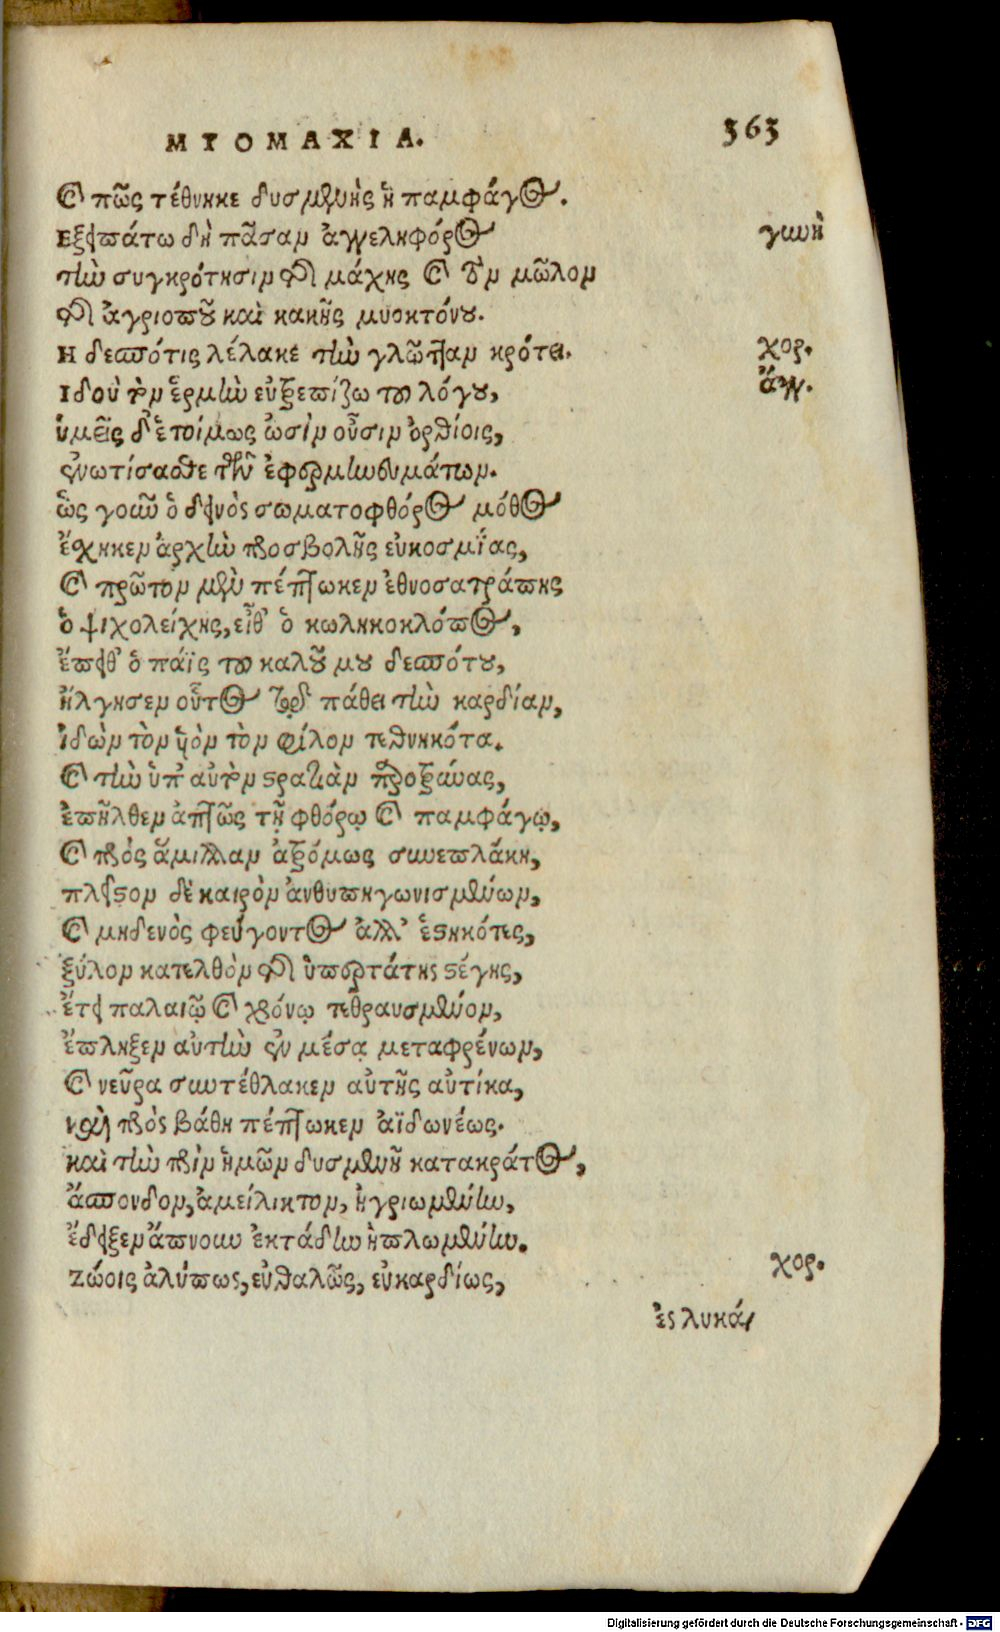 ΜΥΟΜΑΧΙΑ. 363
καὶ πῶς τέθνηκε δυσμενὴς ἢ παμφάγος.
Εξειπάτω δὴ πᾶσαν ἀγγεληφόρος γυνὴ
τὴν συγκρότησιν καὶ μάχης καὶ τὸν μῶλον
καὶ ἀγριοποῦ καὶ κακῆς μυοκτόνου.
Η δεσπότις λέλακε τὴν γλῶτταν κρότει. χορ.
Ιδοὺ τὸν εἱρμὸν εὐτρεπίζω τοῦ λόγου, ἄγγ.
ὑμεῖς δ' ἑτοίμως ὠσὶν οὖσιν ὀρθίοις,
ἐνωτίσασθε τῶν ἐφερμηνευμάτων.
ὡς γοῦν ὁ δεινὸς σωματοφθόρος μόθος
ἔσχηκεν ἀρχὴν προσβολῆς εὐκοσμίας,
καὶ πρῶτον μὲν πέπτωκεν ἐθνοσατράπης
ὁ ψιχολείχης, εἶθ' ὁ κωληκοκλόπος,
ἔπειθ' ὁ πάϊς τοῦ καλοῦ μου δεσπότου,
ἤλγησεν οὗτος τῷδε πάθει τὴν καρδίαν,
ἰδὼν τὸν υἱὸν τὸν φίλον τεθνηκότα.
καὶ τὴν ὑπ' αὐτὸν στρατιὰν παροτρύνας,
ἐπῆλθεν ἀπτῶς τῇ φθόρῳ καὶ παμφάγῳ,
καὶ πρὸς ἅμιλλαν ἀτρόμως συνεπλάκη,
πλεῖστον δὲ καιρὸν ἀνθυπηγωνισμένων,
καὶ μηδενὸς φεύγοντος ἀλλ' ἑστηκότες,
ξύλον κατελθὸν καὶ ὑπερτάτης στέγης,
ἔτει παλαιῷ καὶ χρόνῳ τεθραυσμένον,
ἔπληξεν αὐτὴν ἐν μέσᾳ μεταφρένων,
καὶ νεῦρα συντέθλακεν αὐτῆς αὐτίκα,
καὶ πρὸς βάθη πέπτωκεν ἀϊδωνέως.
καὶ τὴν πρὶν ἡμῶν δυσμενῆ κατακράτος,
ἄσπονδον, ἀμείλικτον, ἠγριωμένην,
ἔδειξεν ἄπνουν ἐκτάδην ἡπλωμένην.
Ζώοις ἀλύπως, εὐθαλῶς, εὐκαρδίως, χορ.
ἐς λυκά/
Digitalisierung gefördert durch die Deutsche Forschungsgemeinschaft - DFG